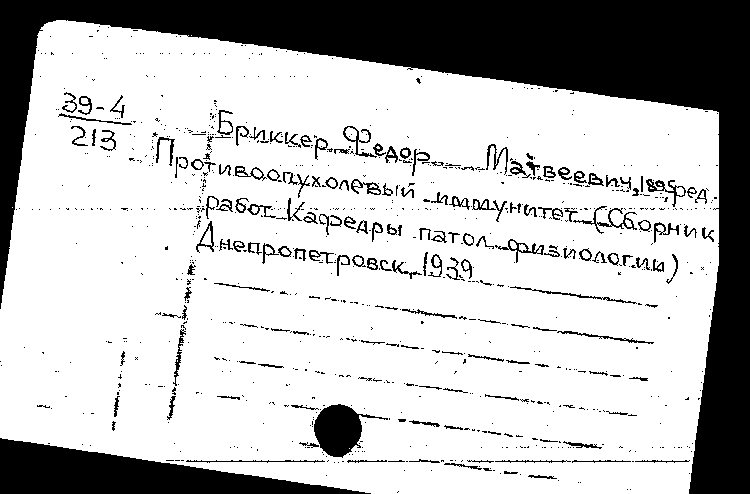 39-4
213
Бриккер Федор Матвеевич, 1895, ред.
Противоопухолевый иммунитет (Сборник
работ Кафедры патол физиологии)
Днепропетровск, 1939